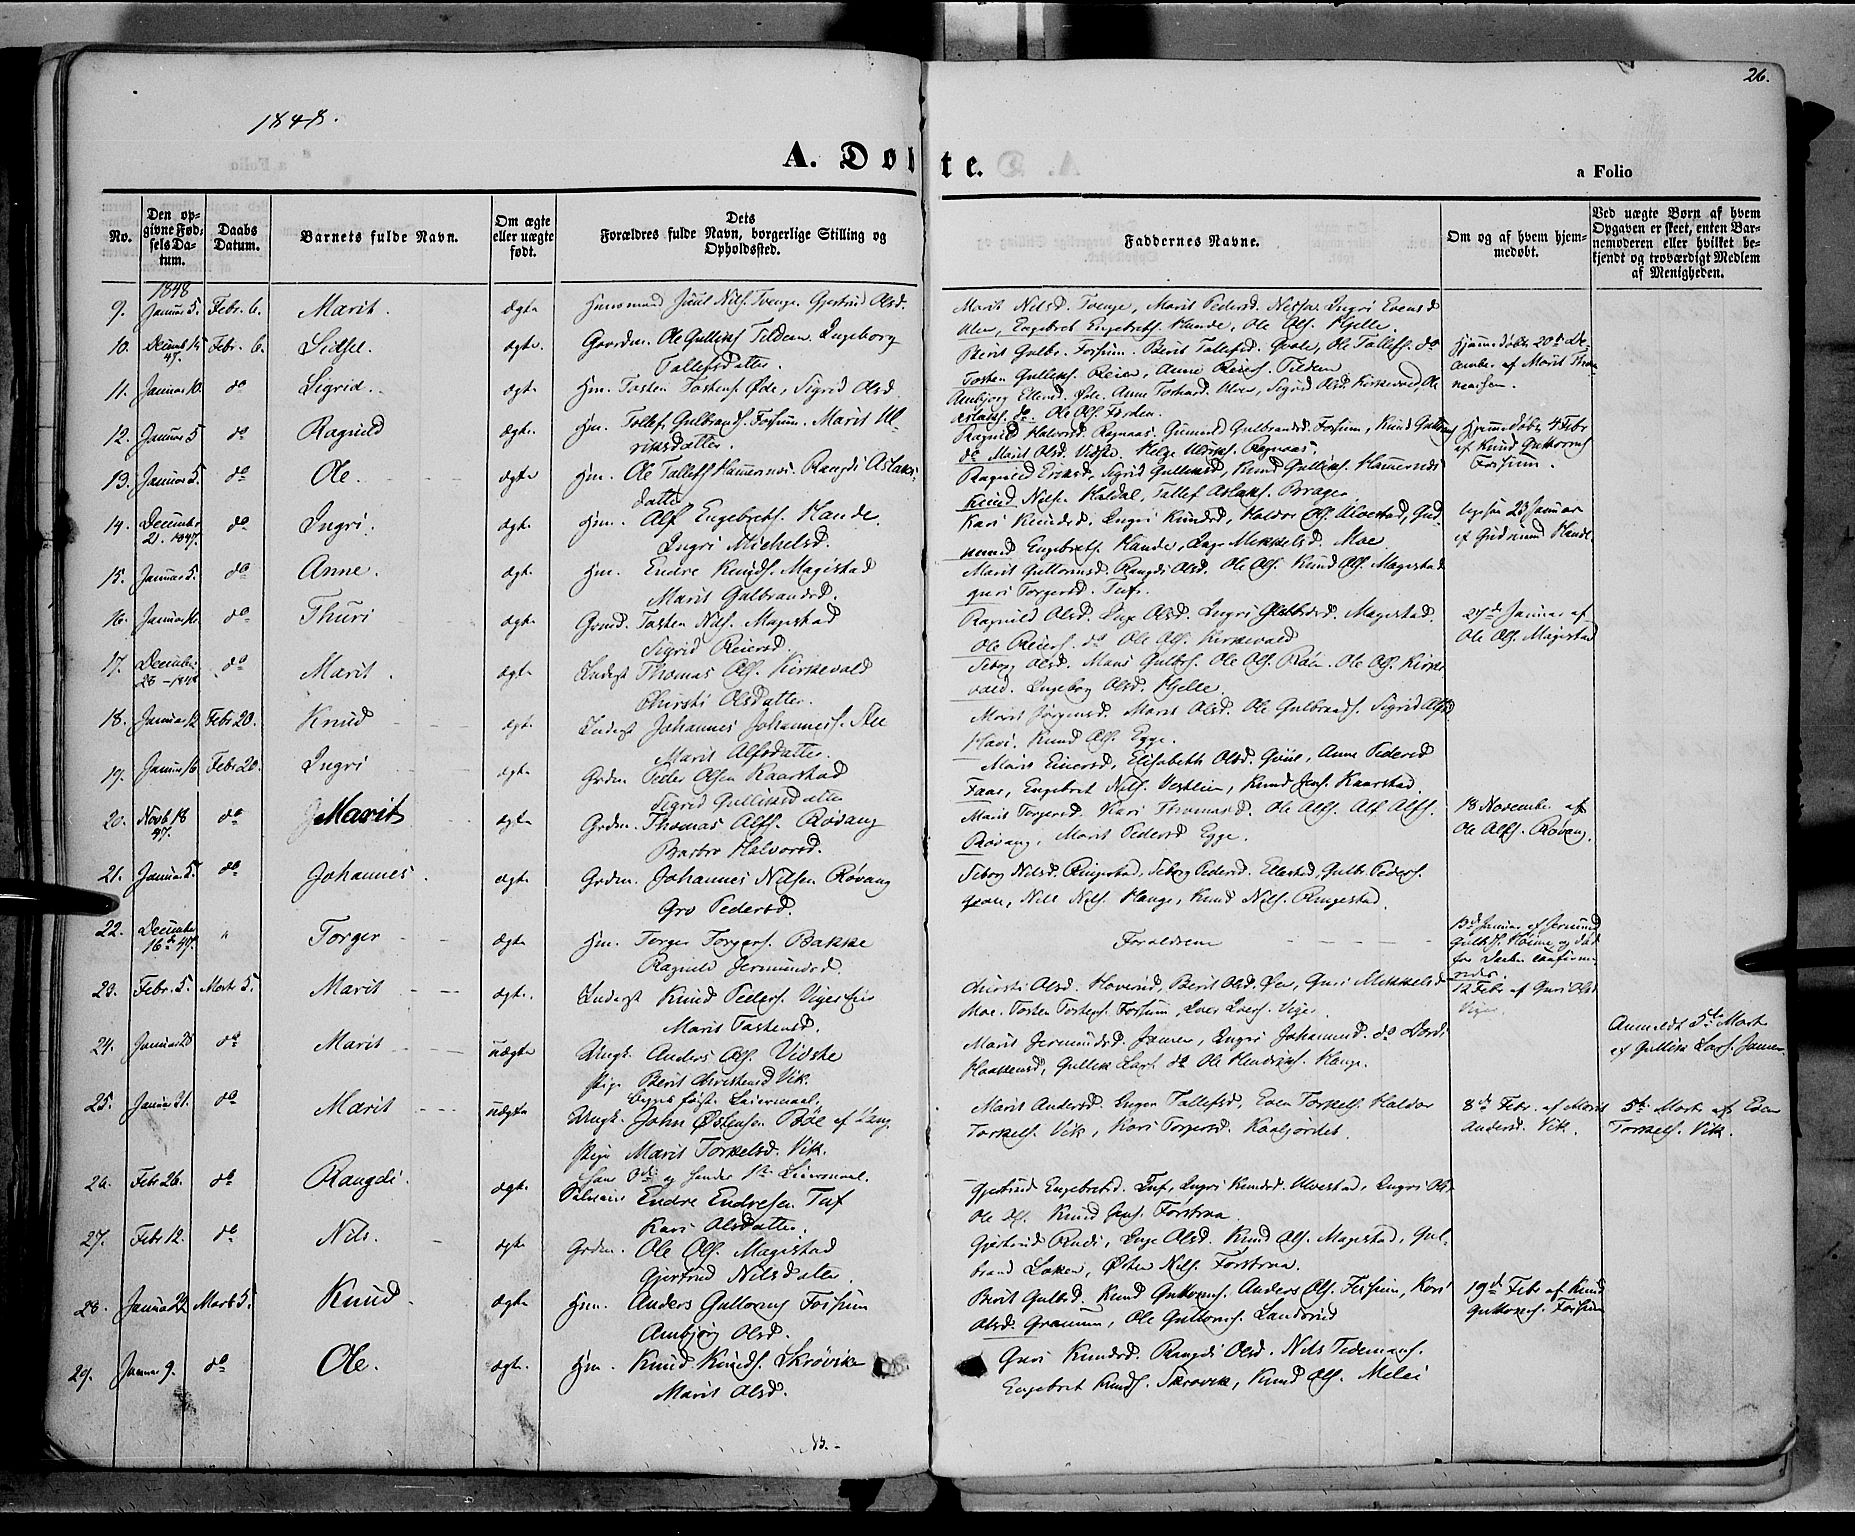 26.
1848.
A. Døbte.
a Folio
No.
Den op-
givne Fød-
sels Da-
tum.
Daabs
Datum.
Barnets fulde Navn.
Om ægte
eller uægte
født.
Dets
Forældres fulde Navn, borgerlige Stilling og
Opholdssted.
Faddernes Navne.
Om og af hvem hjem-
medøbt.
Ved uægte Børn af hvem
Opgaven er skeet, enten Bar-
nemoderen eller hvilket be-
kjendt og troværdigt Medlem
af Menigheden.
1848
9. Januar 5. Febr. 6. Marit. ægte Huusmand Juul Nils. Tvenge. Gjertrud Olsd.
Marit Nilsd. Tvenge, Marit Pedersd. Ingri Evensd
Engebret Engebrets. Hande, Ole Ols. Hjelle.
10. Decemb 15 47. Febr. 6. Sidsel. ægte. Gaardm. Ole Gulliks Tildem Ingeborg
Tollefsdatter.
Berit Gulbr. Forsum. Berit Tollefsd. Ole Tollefs. do
Tosten Gulliks. Reiers. Tildem
Hjemmedøbt 20de De-
cember af Marit Tho-
mesen.
11. Januar 10. do Sigrid. ægte Hm. Tosten Tostens. Øde, Sigrid Olsd.
Ambjørg Ellensd. Øde. Anne Tostensd. Ulven, Sigrid Olsd. Kirkevold, Ole
Aslaks. do. Ole Ols. Forden.
12. Januar 5 do Ragnild ægte. Hm. Tollef Gulbrands. Forsum. Marit Ul-
riksdatter.
Ragnild Halvorsd. Ragnaas. Gulbrandsd. Forsum, Knud Guttorms
do Marit Olsd. Vidste. Helge Ulriks. Ragnaas.
Hjemmedøbt 4 Febr
af Knud Guttorms
Forsum.
13. Januar 5. do Ole. ægte Hm. Ole Tollefs Hamernes. Rangdi Aslaks-
datter
Ragnild Eriksd, Sigrid Gulliksd, Knud Gulliks. Hamernes
Knud Nils. Haldal, Tollef Aslaks. Brager
14. December 21. 1847. do Ingri. ægt. Hm. Alf Engebrets. Hande.
Ingri Michelsd.
Kari Knudsd, Ingri Knudsd, Haldor Ols. Ulvestad, Gud-
mund Engebrets. Hande, Inge Mikkelsd. Moe
23 Januar
af Gudmund Hande
15. Januar 5. do Anne. ægt. Hm. Endre Knuds. Magistad
Marit Gulbrandsd.
Marit Guttormsd. Rangdi Olsd. Ole Ols. Knud Ols. Magestad
Guri Torgersd. Tuf.
16. Januar do Thuri ægte Gmd. Tosten Nils. Magestad
Sigrid Reiersd.
Ragnild Olsd. Inge Olsd. Ingri Magestad.
Ole Reiers. do Ole Ols. Kirkevold
27de Januar af
Ole Ols. Magestad
17. December 28 - 184 do Marit. ægt. Inderst Thomas Ols. Kirkevold
Christi Olsdatter.
Siborg Olsd. Marit Gulbrs. Ole Ols. Røn. Ole Ols. Kirke-
vold. Ingeborg Olsd. Hjelle.
18. Januar 12. Febr 20. Knud ægte Inderst Johannes Johannes.
Marit Alfsdatter.
Marit Jørgensd. Marit Olsd. Ole Gulbrands. Sigrid Alfsd
Knud Ols. Egge.
19. Januar 16 Febr 20. Ingri ægt. Grdm. Peder Olsen Kaarstad
Sigrid Gulliksdatter
Marit Einersd, Elisabeth Olsd. Anne Pedersd
Engebret Nils. Vestlien, Knud Jens. Kaarstad.
20. Novb 18 47. do Marit ægte Grdm. Thomas Alfs. Røvang
Barbro Halvorsd.
Marit Torgersd. Kari Thomasd. Ole Alfs. Alf Alfs.
Røvang, Marit Pedersd Egge.
18 November af
Ole Alfs. Røvang.
21. Januar 5. do Johannes. ægt. Grdm. Johannes Nilsen Røvang
Gro Pedersd.
Siborg Nilsd. Ringestad, Siborg Pedersd. Ellestad, Gulb. Peders.
Nils Nils. Hange, Knud Nils. Ringestad.
22. December 16de 47. " Torger ægte Hm. Torger Torgers. Bakke
Ragnild Jermundsd.
Forældrene
13de Januar af Jermund
Gulbs. og død
før Daaben confirme-
redes.
23. Febr. 5. Marts 5. Marit ægte. Inderst Knud Peders. Vigeseie
Marit Tostensd.
Christi Olsd. Hovrud, Berit Olsd. Guri Mikkelsd
Moe. Tosten Tostens. Forsum, Iver Ivers. Vige.
12 Febr af Guri Olsd
Vige.
24. Januar 28 do Marit uægte Ungk. Anders Ols. Vidste
Pige Berit Christensd Vik.
Begges første Leiermaal.
Marit Jermundsd. Inger Johannesd. do
Haakensd, Gullik Lars. do Ole Hendriks. Hange.
Anmeldt 5te Marts
af Gullik Lars.
25. Januar 31. do Marit uægte Ungk. John Østensen Bøe af Vang
Pige Marit Torkelsd. Vik.
Hans 3de og hendes 1ste Leiermaal.
Marit Andersd. Inger Tollefsd, Even Torkels. Haldor
Torkels. Vik, Kari Torgersd. Kaaljordet.
8de Febr. af Marit
Andersd. Vik.
5te Marts af Even
Torkels. Vik.
26. Febr 26. do Rangdi. ægt. Endre Endresen Tuf
Kari Olsdatter.
Gjertrud Engebretsd. Tuf, Ingri Knudsd. Ulvestad, Ingri Olsd
Ole Ols. Knud Jens. Forstraa.
27. Febr 12. do Nils. ægt. Grdm. Ole Ols. Magistad
Gjertrud Nilsdatter.
Gjertrud Rudi, Inge Olsd. Knud Ols. Magestad, Gul-
brand Loken, Østen Nils. Forstraa.
28. Januar Marts 5. Knud ægte Hm. Anders Guttorms Forsum
Ambjørg Olsd.
Berit Gulbsd. Knud Guttorms. Anders Ols. Forsum, Kari
Olsd. Ole Guttorms. Landsrud
19de Febr af Knud
Guttorms. Forsum
29. Januar 9. do Ole. ægt. Hm. Knud Knuds. Skrøvik
Marit Olsd.
Guri Knudsd. Rangdi Olsd. Nils Tidemans.
Engebret Knuds. Skrøvik, Knud Ols. Melei